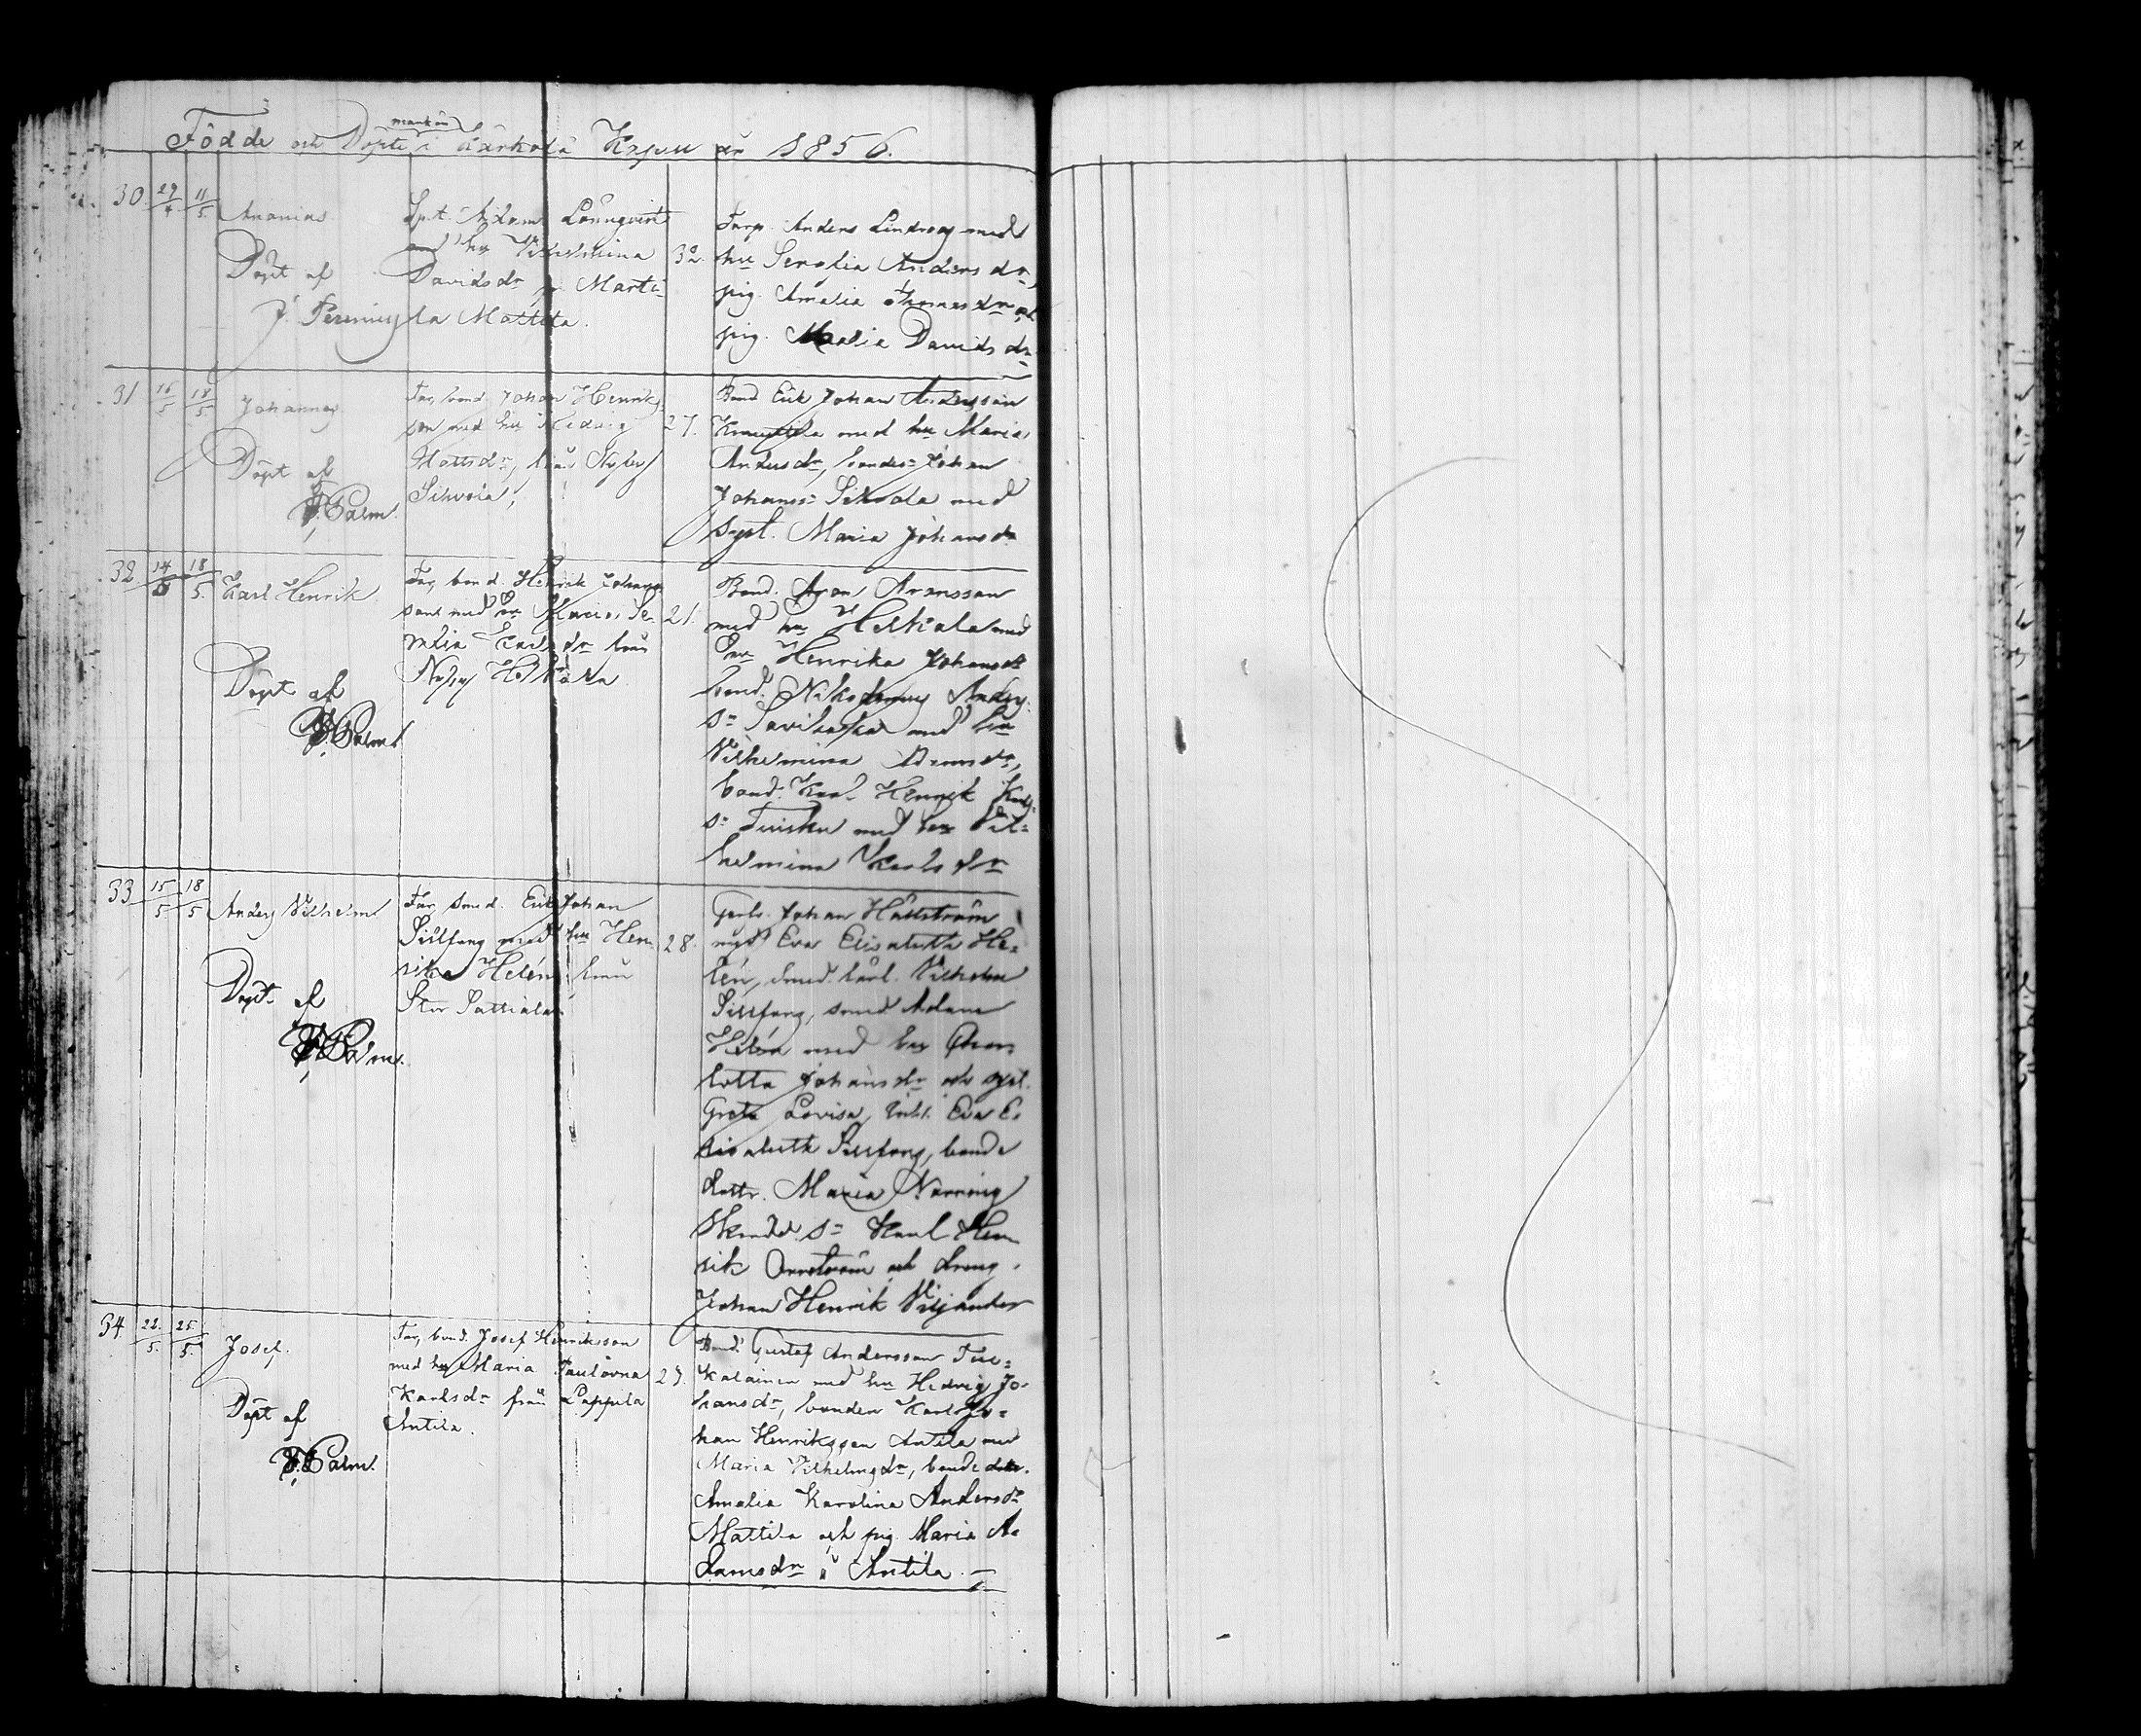 mankön
Födde och Döpte i Kärkölä Kapell år 1856.
30 29/4 11/5
Ananias
Döpt af
J. Perenius
Spt. Adam Lönnqvist
med hu Vilhelmina
Davidsdr fr. Martti-
la Mattila.
32.
Torp. Anders Lindroos med
hu Serafia Andersdr,
pig. Amalia Thomasdr och
pig. Maria Davidsdr
31 16/5 18/5
Johannes
Döpt af
Palm.
Far, bond. Johan Henriks-
son med hu Hedvig
Mattsdr, från Nyby
Sihvola,
27.
Bond Erik Johan Andersson
med hu Maria
Andersdr, bondes: Johan
Johanss: Sihvola med
Syst. Maria Johansdr
32 14/5 18/5
Karl Henrik
Döpt af
Palm
Far, bond. Henrik Johans-
son med hu Maria Se-
rafia Karlsdr från
Nyby Heikola
21.
Bond. Aron Aronsson
med hu Heikola med
hu Henrika Johansdr
bond. Nikodemus Anders
sn med hu
Vilhelmina Adamsdr,
bond. Karl Henrik Karls-
sn Tuisku med hu Vil-
helmina Karlsdr
33 15/5 18/5
Anders Vilhelm
Döpt af
Palm.
Far smed. Erik Johan
Sillfång med hu Hen
rika Helén från
Stor Sattiala
28.
Johan Hällström
med Eva Elisabeth He-
lén, smed. karl. Vilhelm
Sillfång, smed Adam
Helén med hu Char
lotta Johansdr och syst.
Greta Lovisa, inh. Eva E-
lisabeth Sillfång, bonde
dottr. Maria Norring
sn Karl Hen
rik och dreng.
Johan Henrik Viljander
34. 22/5. 25/5.
Josef.
Döpt af
Palm.
Far, bond. Josef Henriksson
med hu Maria Paulovna
Karlsdr från Lappila
Antila.
29.
Bond. Gustaf Andersson Tue-
kalainen med hu Hedvig Jo-
hansdr, bonden Karl Jo-
han Henriksson Antila med
Maria Vilhelmsdr, bonde dottr.
Amalia Karolina Andersdr
Mattila och pig. Maria A-
damsdr å Antila.